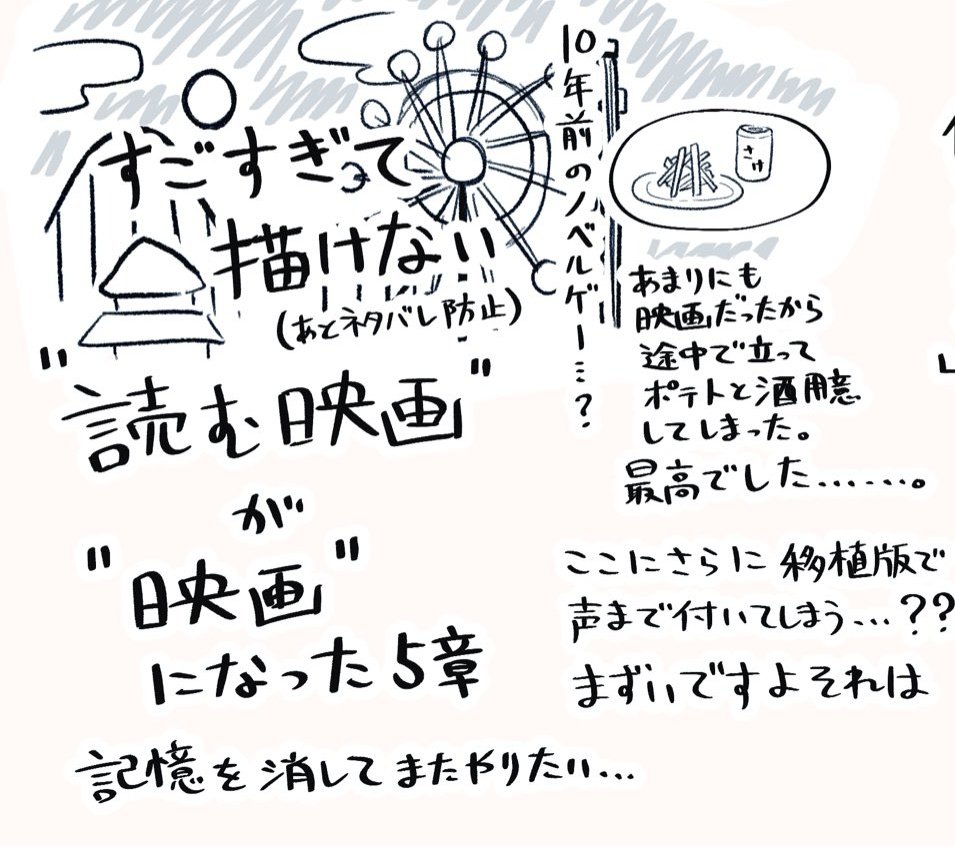 すごすぎて
描けない
(あとネタバレ防止)
10年前のノベルゲー…?
さけ
あまりにも
映画だったから
途中で立って
ポテトと酒用意
してしまった。
最高でした……。
"読む映画"
が
"映画"
になった5章
ここにさらに移植版で
声まで付いてしまう…??
まずいですよそれは
記憶を消してまたやりたい…